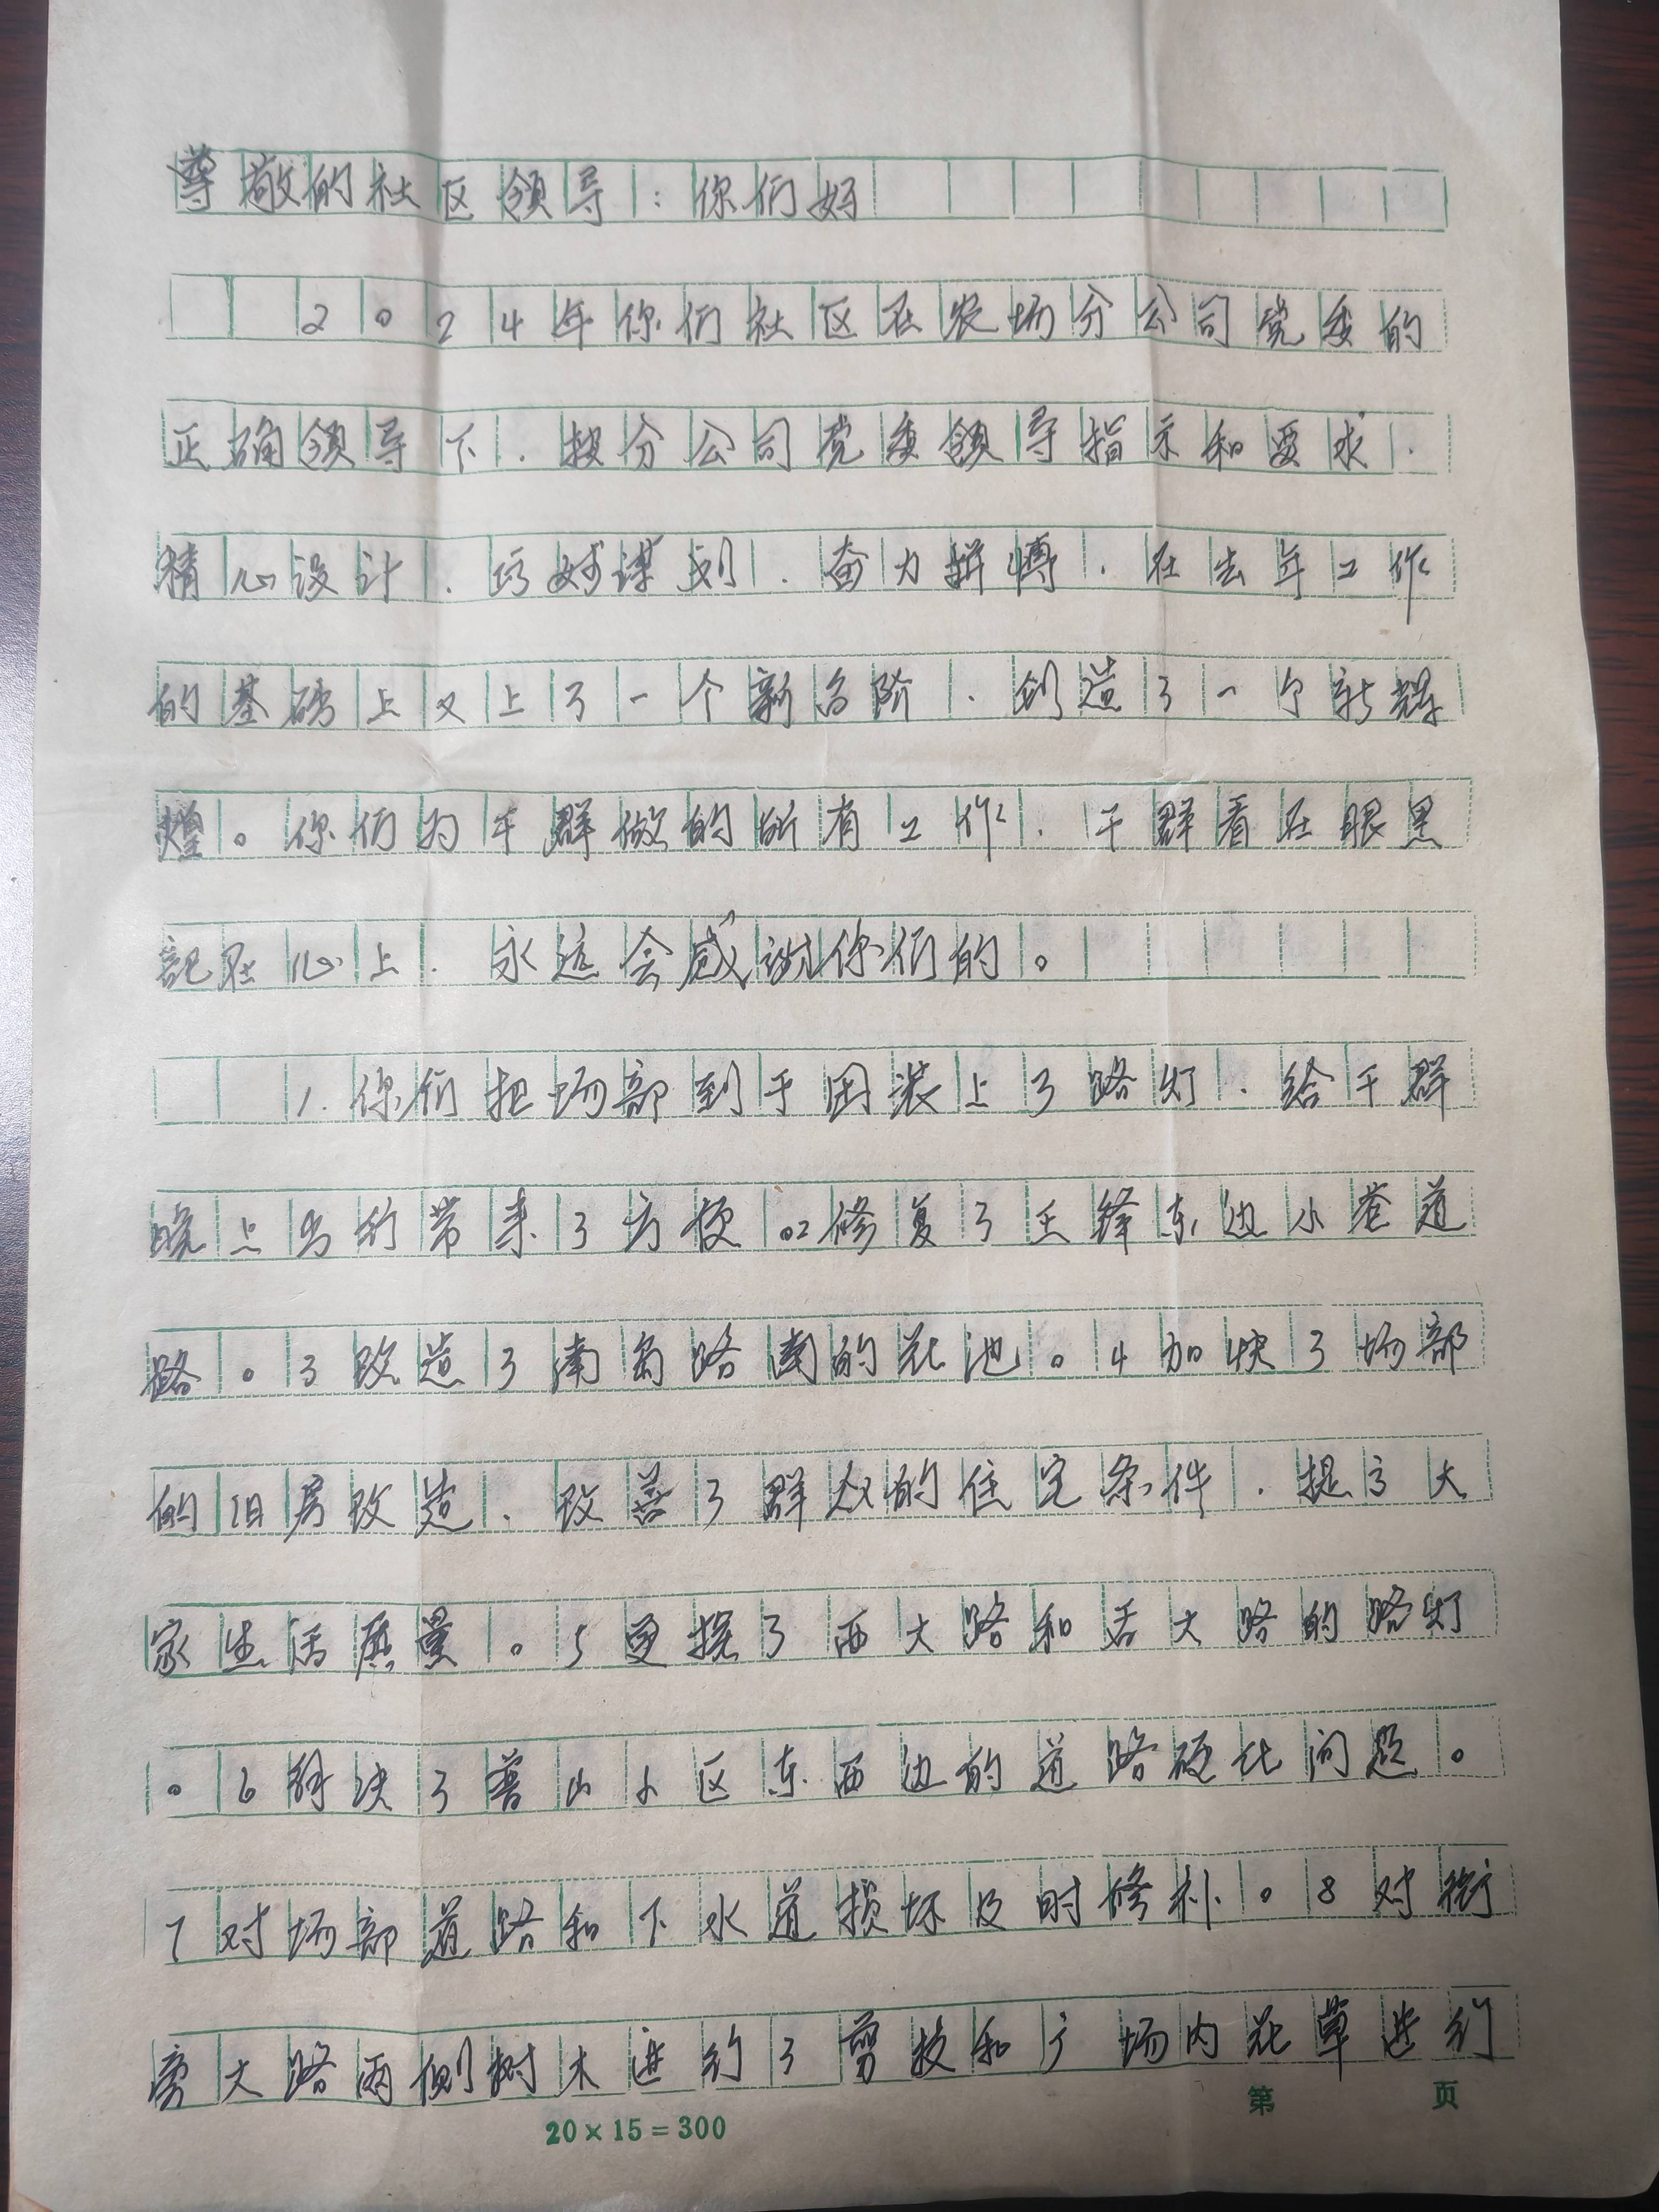 尊敬的社区领导:你们好
2024年你们社区在农场分公司党委的
正确领导下.按分公司党委领导指示和要求.
精心设计.巧妙谋划.奋力拼博.在去年工作
的基础上又上了一个新台阶.创造了一个新辉
煌。你们为干群做的所有工作.干群看在眼里
記在心上.永远会感谢你们的。
1.你们把场部到于围装上了路灯.给干群
晚上出行带来了方便。2修复了王锋东边小巷道
路。3改造了南岛路南的花池。4加快了场部
的旧房改造.改善了群众的住宅条件.提高大
家生活质量。5更换了西大路和古大路的路灯
。6解决了普山小区东西边的道路硬化问题。
7对场部道路和下水道损坏及时修补。8对
大路两侧树木进行了剪枝和广场内花草进行
20×15=300
第 页